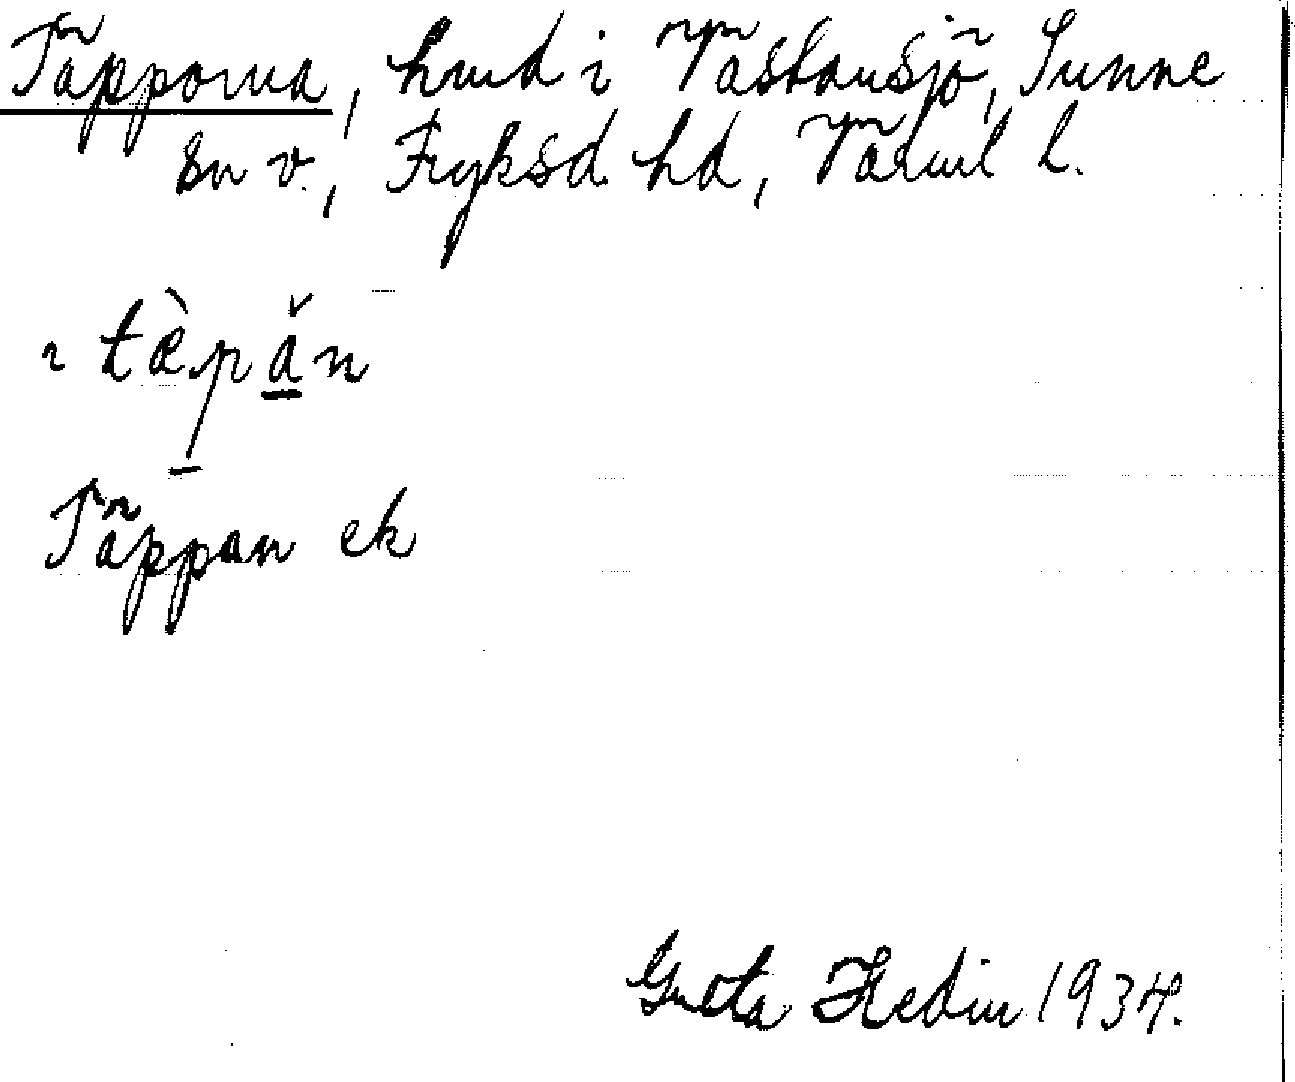 Täpporna, hmd i Västansjö, Sunne
sn v., Fryksd. hd, Värml l.
ı tæ̀pǎ̲n
Täppan ek
Greta Hedin 1934.